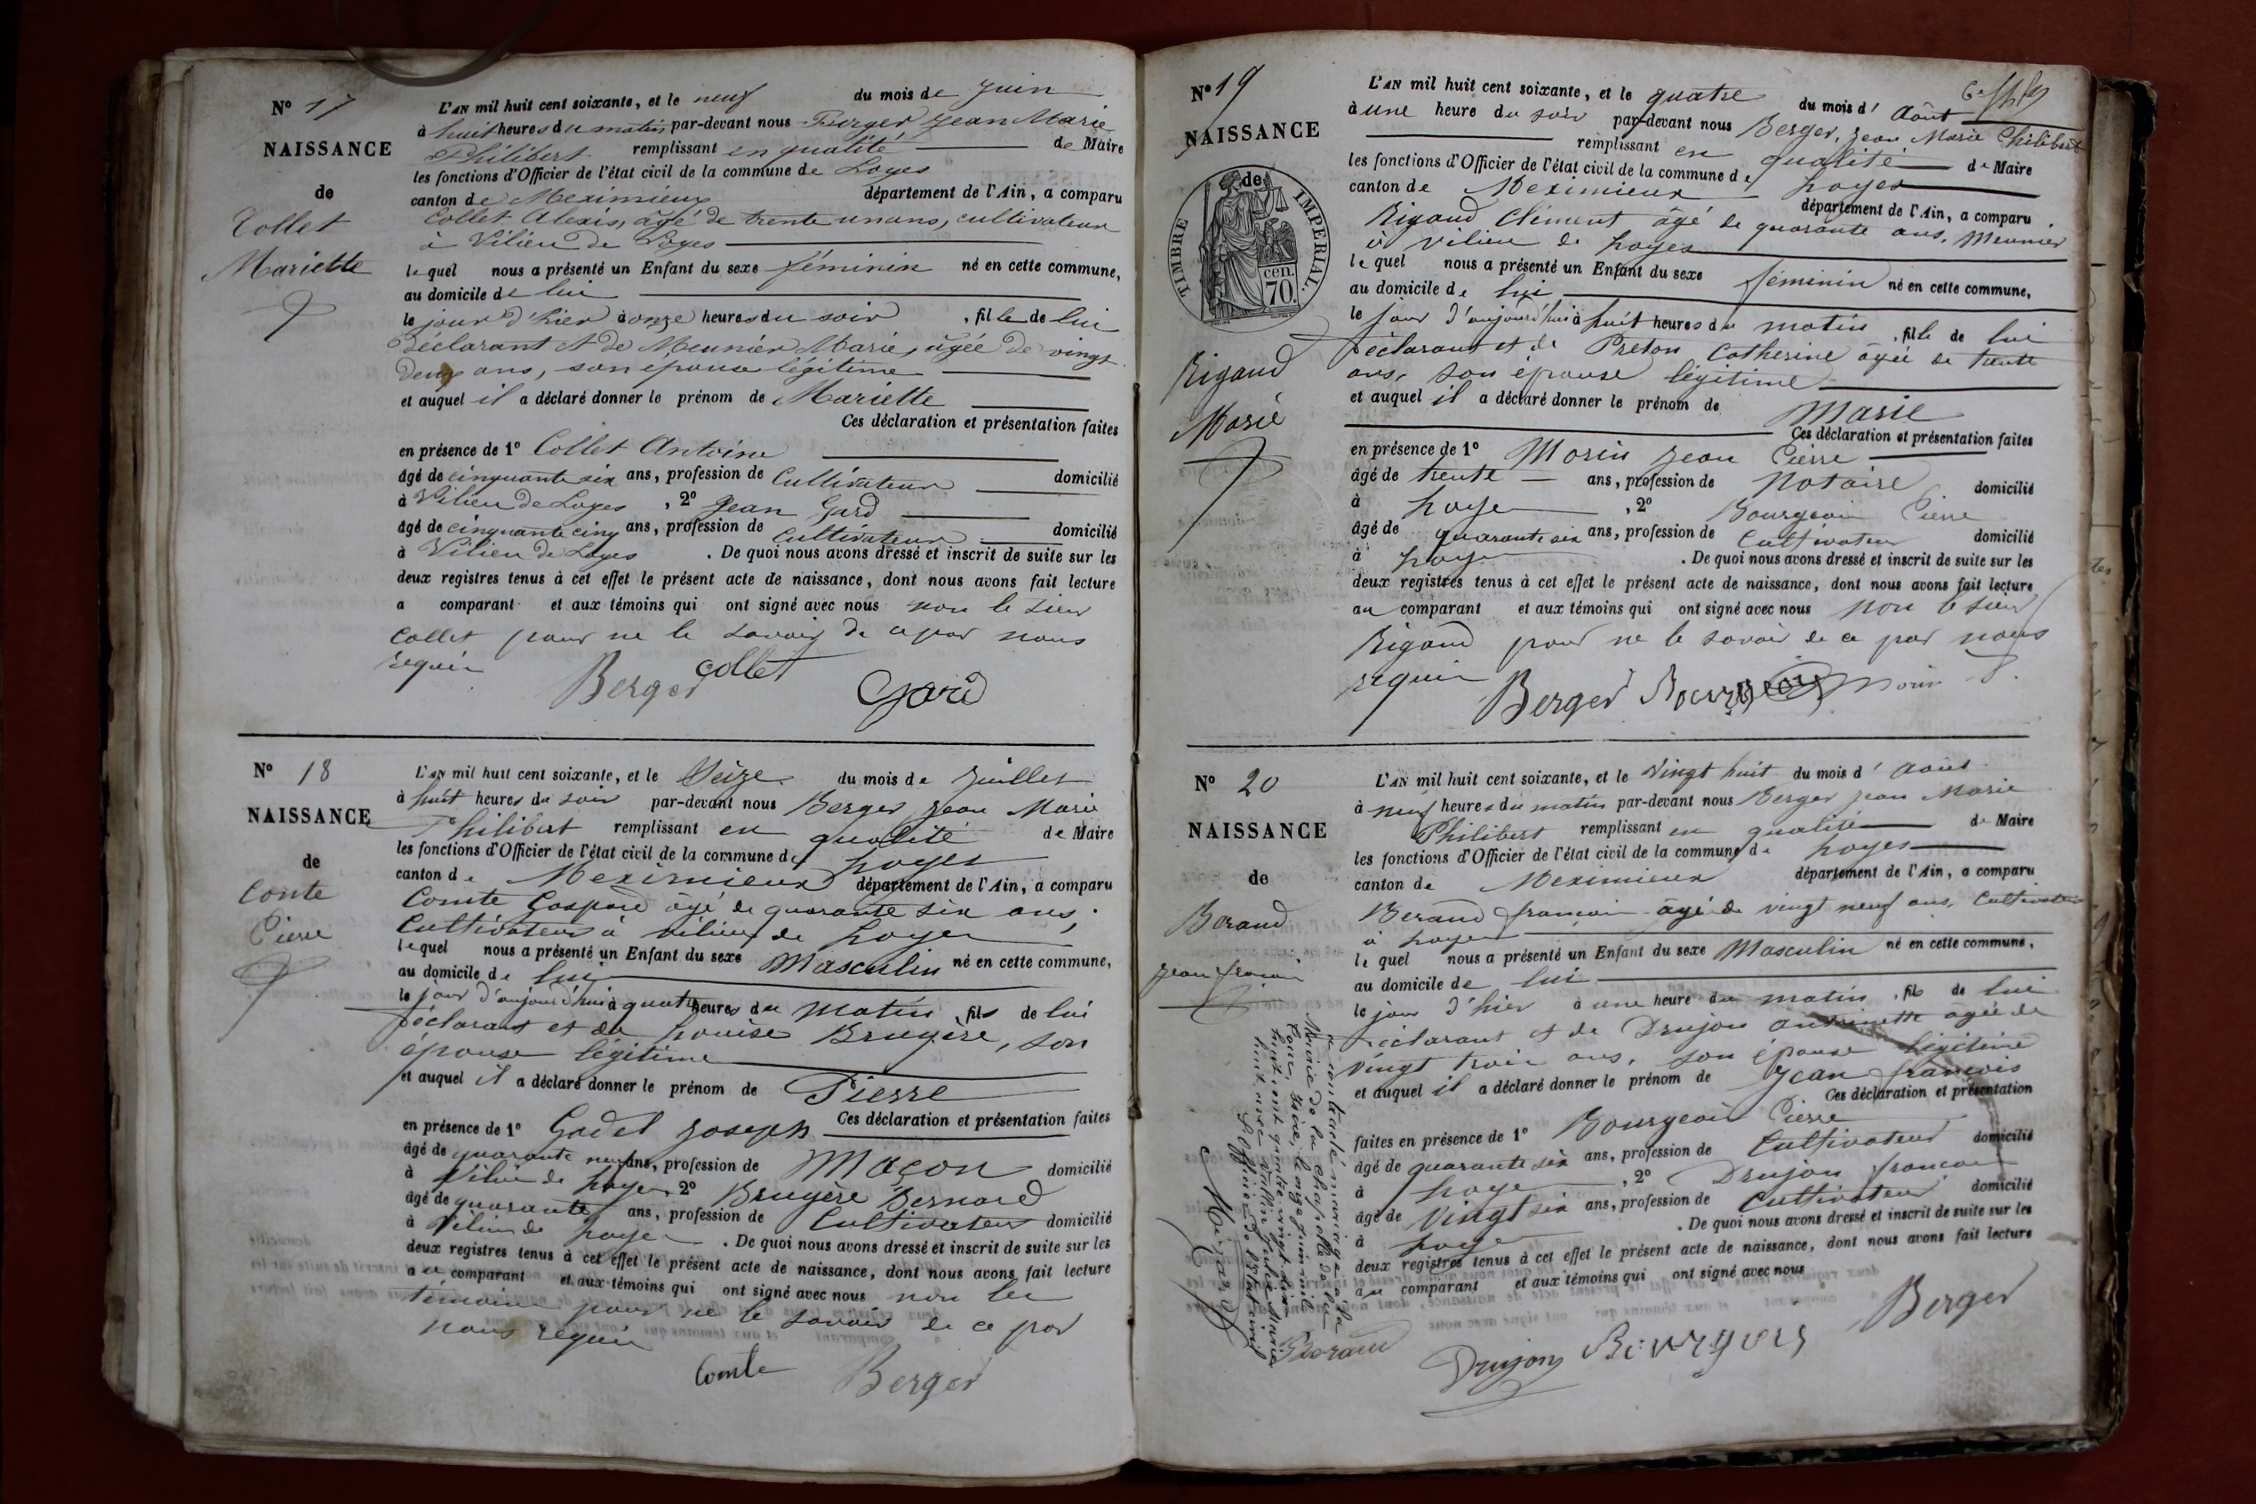 N° 17
NAISSANCE
de
Collet
Mariette
L'AN mil huit cent soixante, et le neuf du mois de Juin
à huit heures du matin par-devant nous Berger Jean Marie
Philibert remplissant en qualité de Maire
les fonctions d'Officier de l'état civil de la commune de Loyes
canton de Meximieux département de l'Ain, a comparu
Collet Alexis, âgé de trente un ans, cultivateur
à Vilieu de Loyes
lequel nous a présenté un Enfant du sexe féminin né en cette commune,
au domicile de lui
le jour d'hier à onze heures du soir, fille de lui
déclarant et de Meunier Marie, âgée de vingt
deux ans, son épouse légitime
et auquel il a déclaré donner le prénom de Mariette
Ces déclaration et présentation faites
en présence de 1° Collet Antoine
âgé de cinquante six ans, profession de Cultivateur domicilié
à Vilieu de Loyes, 2° Jean Gard
âgé de cinquante cinq ans, profession de Cultivateur domicilié
à Vilieu de Loyes. De quoi nous avons dressé et inscrit de suite sur les
deux registres tenus à cet effet le présent acte de naissance, dont nous avons fait lecture
a comparant et aux témoins qui ont signé avec nous non le sieur
Collet pour ne le savoir de ce par nous
requis
Berger collet Gard
N° 18
NAISSANCE
de
Comte
Pierre
L'AN mil huit cent soixante, et le Seize du mois de Juillet
à huit heures du soir par-devant nous Berger Jean Marie
Philibert remplissant en qualité de Maire
les fonctions d'Officier de l'état civil de la commune de Loyes
canton de Meximieux département de l'Ain, a comparu
Comte Gaspard âgé de quarante six ans,
Cultivateur à vilieu de Loyes
lequel nous a présenté un Enfant du sexe Masculin né en cette commune,
au domicile de lui
le jour d'aujourd'hui à quatre heures du matin, fils de lui
déclarant et de Louise Bruyère, son
épouse légitime
et auquel il a déclaré donner le prénom de Pierre
Ces déclaration et présentation faites
en présence de 1° Godel Joseph
âgé de quarante neuf ans, profession de Maçon domicilié
à Vilieu de Loyes, 2° Bruyère Bernard
âgé de quarante ans, profession de Cultivateur domicilié
à Vilieu de Loyes. De quoi nous avons dressé et inscrit de suite sur les
deux registres tenus à cet effet le présent acte de naissance, dont nous avons fait lecture
au comparant et aux témoins qui ont signé avec nous non les
témoins pour ne le savoir de ce par
nous requis
Comte Berger
N° 19
NAISSANCE
de
TIMBRE IMPERIAL.
cen.
70.
Rigaud
Marie
L'AN mil huit cent soixante, et le quatre du mois d'Août
à une heure du soir par-devant nous Berger, Jean Marie Philibert
remplissant en qualité de Maire
les fonctions d'Officier de l'état civil de la commune de Loyes
canton de Meximieux département de l'Ain, a comparu
Rigaud Clément âgé de quarante ans, Meunier
à vilieu de Loyes
lequel nous a présenté un Enfant du sexe féminin né en cette commune,
au domicile de lui
le jour d'aujourd'hui à huit heures du matin, fille de lui
déclarant et de Preton Catherine âgée de trente
ans, son épouse légitime
et auquel il a déclaré donner le prénom de Marie
Ces déclaration et présentation faites
en présence de 1° Morin Jean Pierre
âgé de trente ans, profession de Notaire domicilié
à Loyes, 2° Bourgeois Pierre
âgé de quarante six ans, profession de Cultivateur domicilié
à Loyes. De quoi nous avons dressé et inscrit de suite sur les
deux registres tenus à cet effet le présent acte de naissance, dont nous avons fait lecture
au comparant et aux témoins qui ont signé avec nous non le sieur
Rigaud pour ne le savoir de ce par nous
requis
Berger Bourgeois Morin
N° 20
NAISSANCE
de
Beraud
Jean françois
L'AN mil huit cent soixante, et le Vingt huit du mois d'août
à neuf heures du matin par-devant nous Berger Jean Marie
Philibert remplissant en qualité de Maire
les fonctions d'Officier de l'état civil de la commune de Loyes
canton de Meximieux département de l'Ain, a comparu
Beraud françois âgé de vingt neuf ans, Cultivateur
à Loyes
lequel nous a présenté un Enfant du sexe Masculin né en cette commune,
au domicile de lui
le jour d'hier à une heure du matin, fils de lui
déclarant et de Drujon antoinette âgée de
Vingt trois ans, son épouse légitime
et auquel il a déclaré donner le prénom de Jean françois
Ces déclaration et présentation
faites en présence de 1° Bourgeois Pierre
âgé de quarante six ans, profession de Cultivateur domicilié
à Loyes, 2° Drujon françois
âgé de vingt six ans, profession de Cultivateur domicilié
à Loyes. De quoi nous avons dressé et inscrit de suite sur les
deux registres tenus à cet effet le présent acte de naissance, dont nous avons fait lecture
au comparant et aux témoins qui ont signé avec nous
Beraud Drujon Bourgeois Berger
a contracté mariage à la
Mairie de la Chapelle de
Isère, le onze juin mil
huit cent quatre vingt dix
huit avec Marie
L'officier de l'état civil